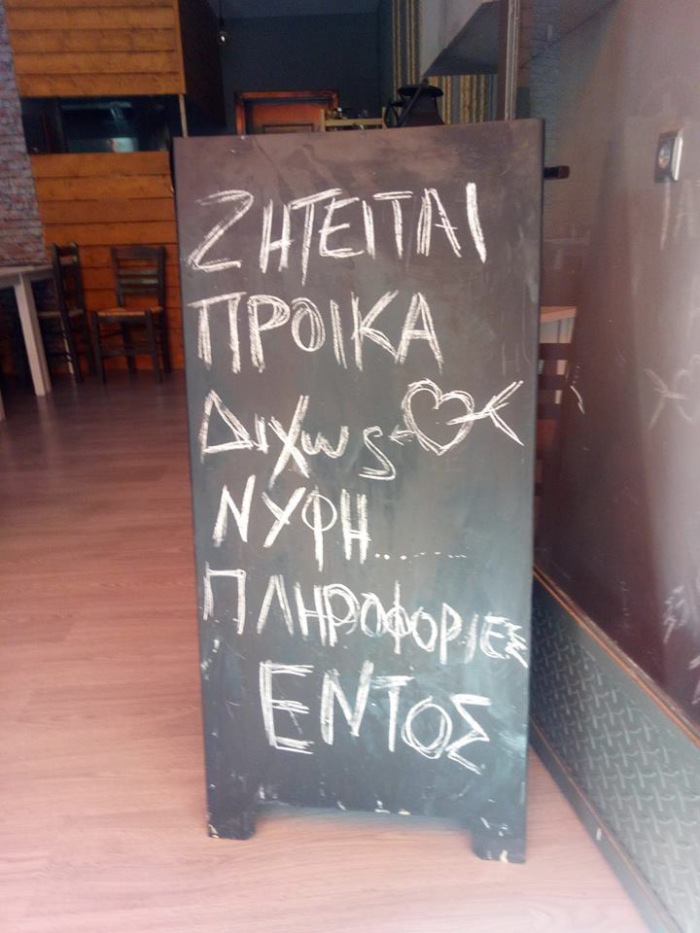 ΖΗΤΕΙΤΑΙ
ΠΡΟΙΚΑ
ΔΙΧως
ΝΥΦΗ........
ΠΛΗΡΟΦΟΡΙΕΣ
ΕΝΤΟΣ